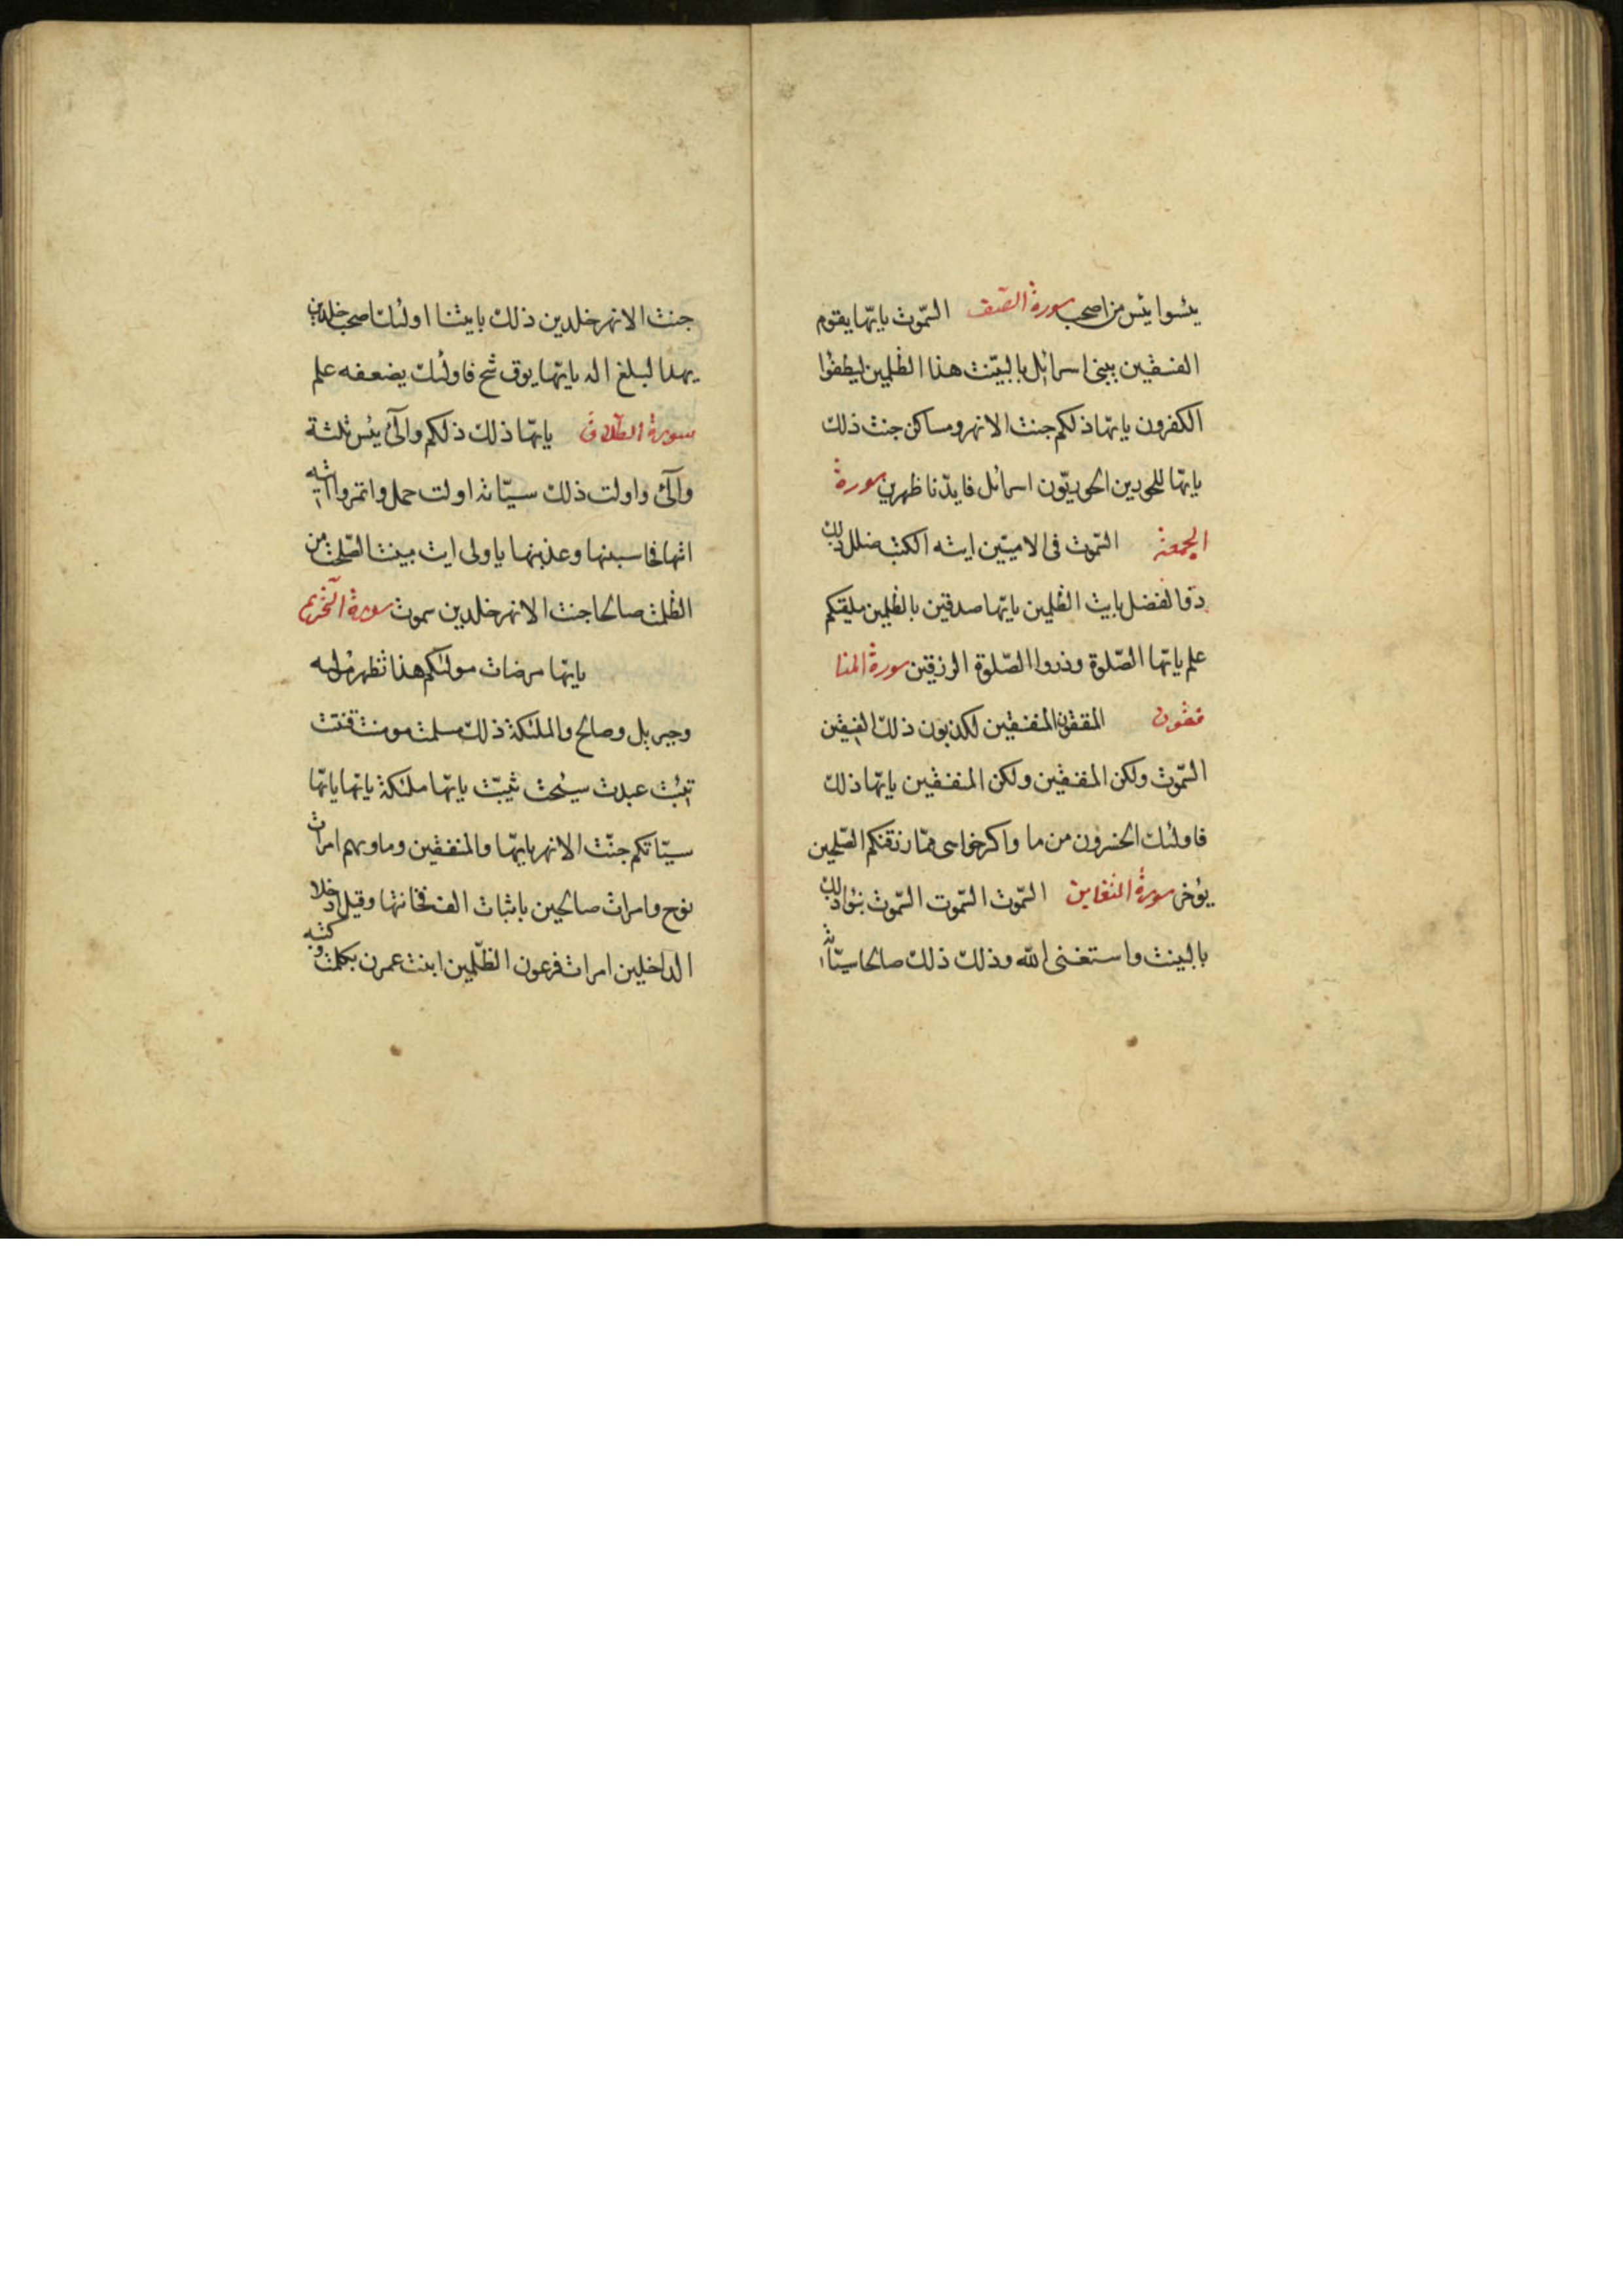 يئسوا يئس من اصحب سورة الصّف السّموت يايّها يقوم
الفسقين يبنى اسرائل بالبيّنت هذا الظلمين ليطفؤا
الكفرون يايّها ذلكم جنت الانهر ومساكن جنت ذلك
يايّها للحورين الحوريّون اسرائل فايدنا ظهرين سورة
الجمعة السّموت فى الاميّين ايته الكتب ضلل ذلك
ذوالفضل بايت الظلمين يايّها صدقين بالظلمين ملقيكم
علم يايّها الصّلوة وذروا الصّلوة الرزقين سورة المنا
فقون المنفقون المنفقين لكذبون ذلك الفسقين
السّموت ولكن المنفقين ولكن المنفقين يايّها ذلك
فاولئك الخسرون من ما رزقنكم الصّلحين
يؤخر سورة التغابن السّموت السّموت السّموت نبؤا ذلك
بالبينت واستغنى الله وذلك ذلك صالحا سيّاته
جنت الانهر خلدين ذلك بايتنا اولئك اصحب خلدين
يهد البلغ اله يايّها يوق شح فاولئك يضعفه علم
سورة الطلاق يايّها ذلك ذلكم والّئ يئس ثلثة
والّئ واولت ذلك سيّاته اولت حمل واتمروا اتيه
اتها فحاسبنها وعذبنها ياولى ايت مبينت الصّلحت من
الظلمت صالحا جنت الانهر خلدين سموت سورة التحريم
يايّها مرضات مولكم هذا تظهرا موليه
وجبريل وصالح والملئكة ذلك مسلمت مومنت قنتت
تئبت عبدت سئحت ثيّبت يايّها ملئكة يايّها يايّها
سيّاتكم جنّت الانهر يايّها والمنفقين وماويهم امرات
نوح وامرات صالحين فخانتها وقيل ادخلا
الداخلين امرات فرعون الظّلمين ابنت عمرن بكلمت وكتبه